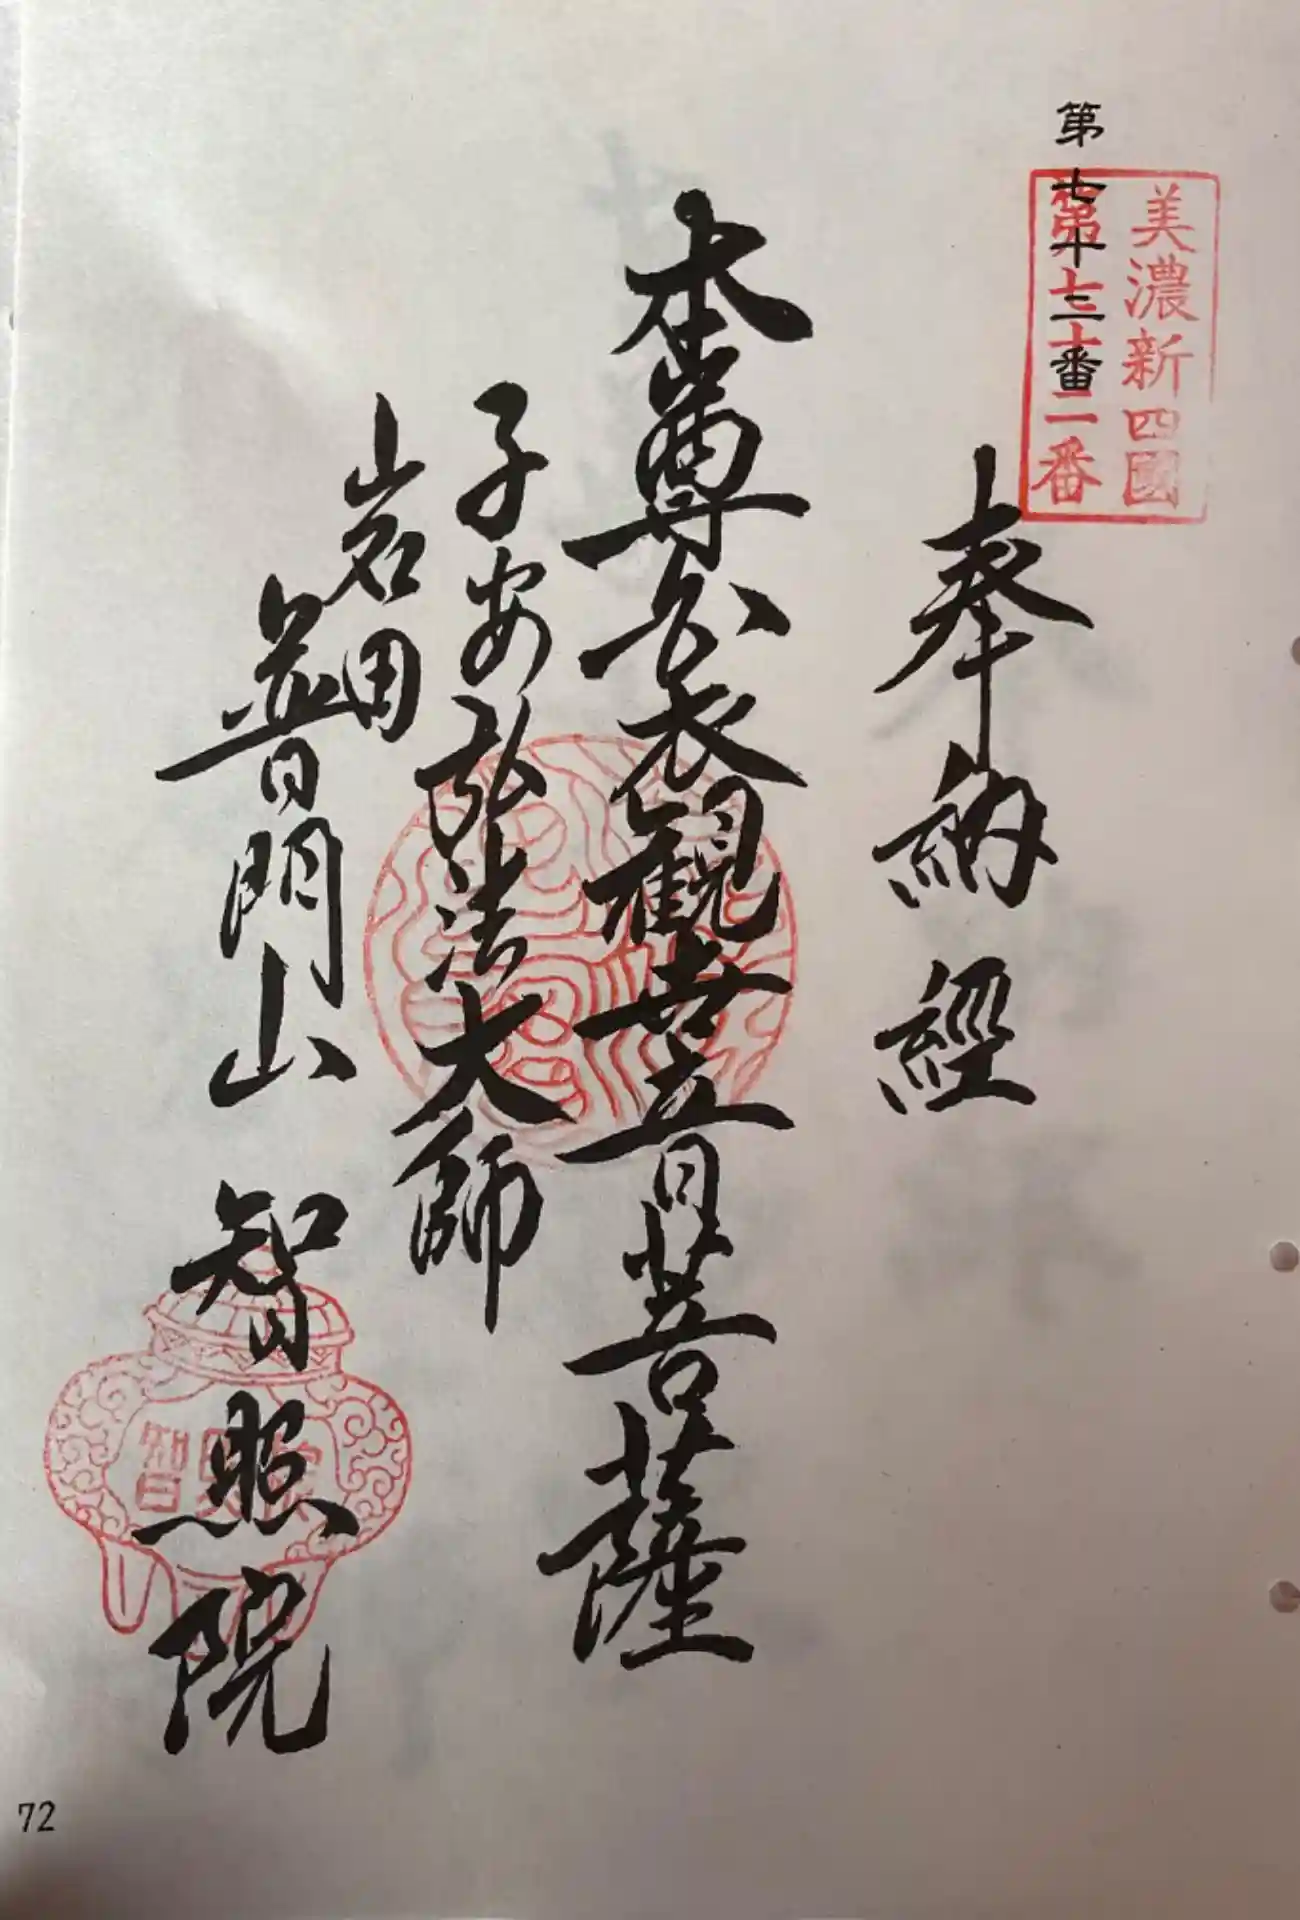 第七十二番
美濃新四國
第七十二番
奉納經
本尊白衣観世音菩薩
子安弘法大師
岩田
普門山 智照院
智照院
72